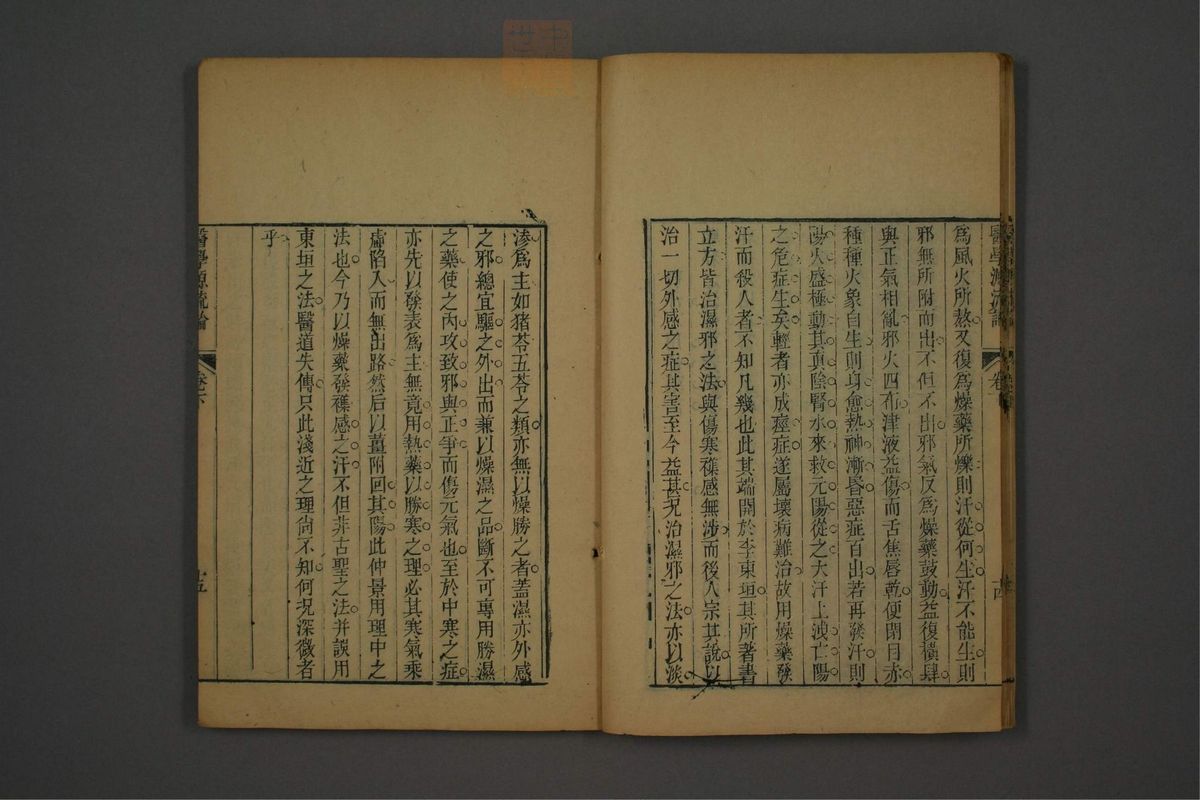 醫學源流論
卷上
古
為風火所熬又復為燥藥所爍則汗從何生汗不能生則
邪無所附而出不但不出邪氣反為燥藥鼓動益復橫肆
與正氣相亂邪火四布津液益傷而舌焦唇乾便閉目赤
種種火象自生則身愈熱神漸昏惡症百出若再發汗則
陽火盛極動其真陰腎水來救元陽從之大汗上洩亡陽
之危症生矣輕者亦成痙症遂屬壞病難治故用燥藥發
汗而殺人者不知凡幾也此其端開於李東垣其所著書
立方皆治濕邪之法與傷寒襍感無涉而後人宗其說以
治一切外感之症其害至今益甚况治濕邪之法亦以淡
滲為主如猪苓五苓之類亦無以燥勝之者蓋濕亦外感
之邪總宜驅之外出而兼以燥濕之品斷不可專用勝濕
之藥使之內攻致邪與正爭而傷元氣也至於中寒之症
亦先以發表為主無竟用熱藥以勝寒之理必其寒氣乘
虛陷入而無出路然后以薑附回其陽此仲景用理中之
法也今乃以燥藥發襍感之汗不但非古聖之法并誤用
東垣之法醫道失傳只此淺近之理尙不知何况深微者
乎
醫學源流論
十五